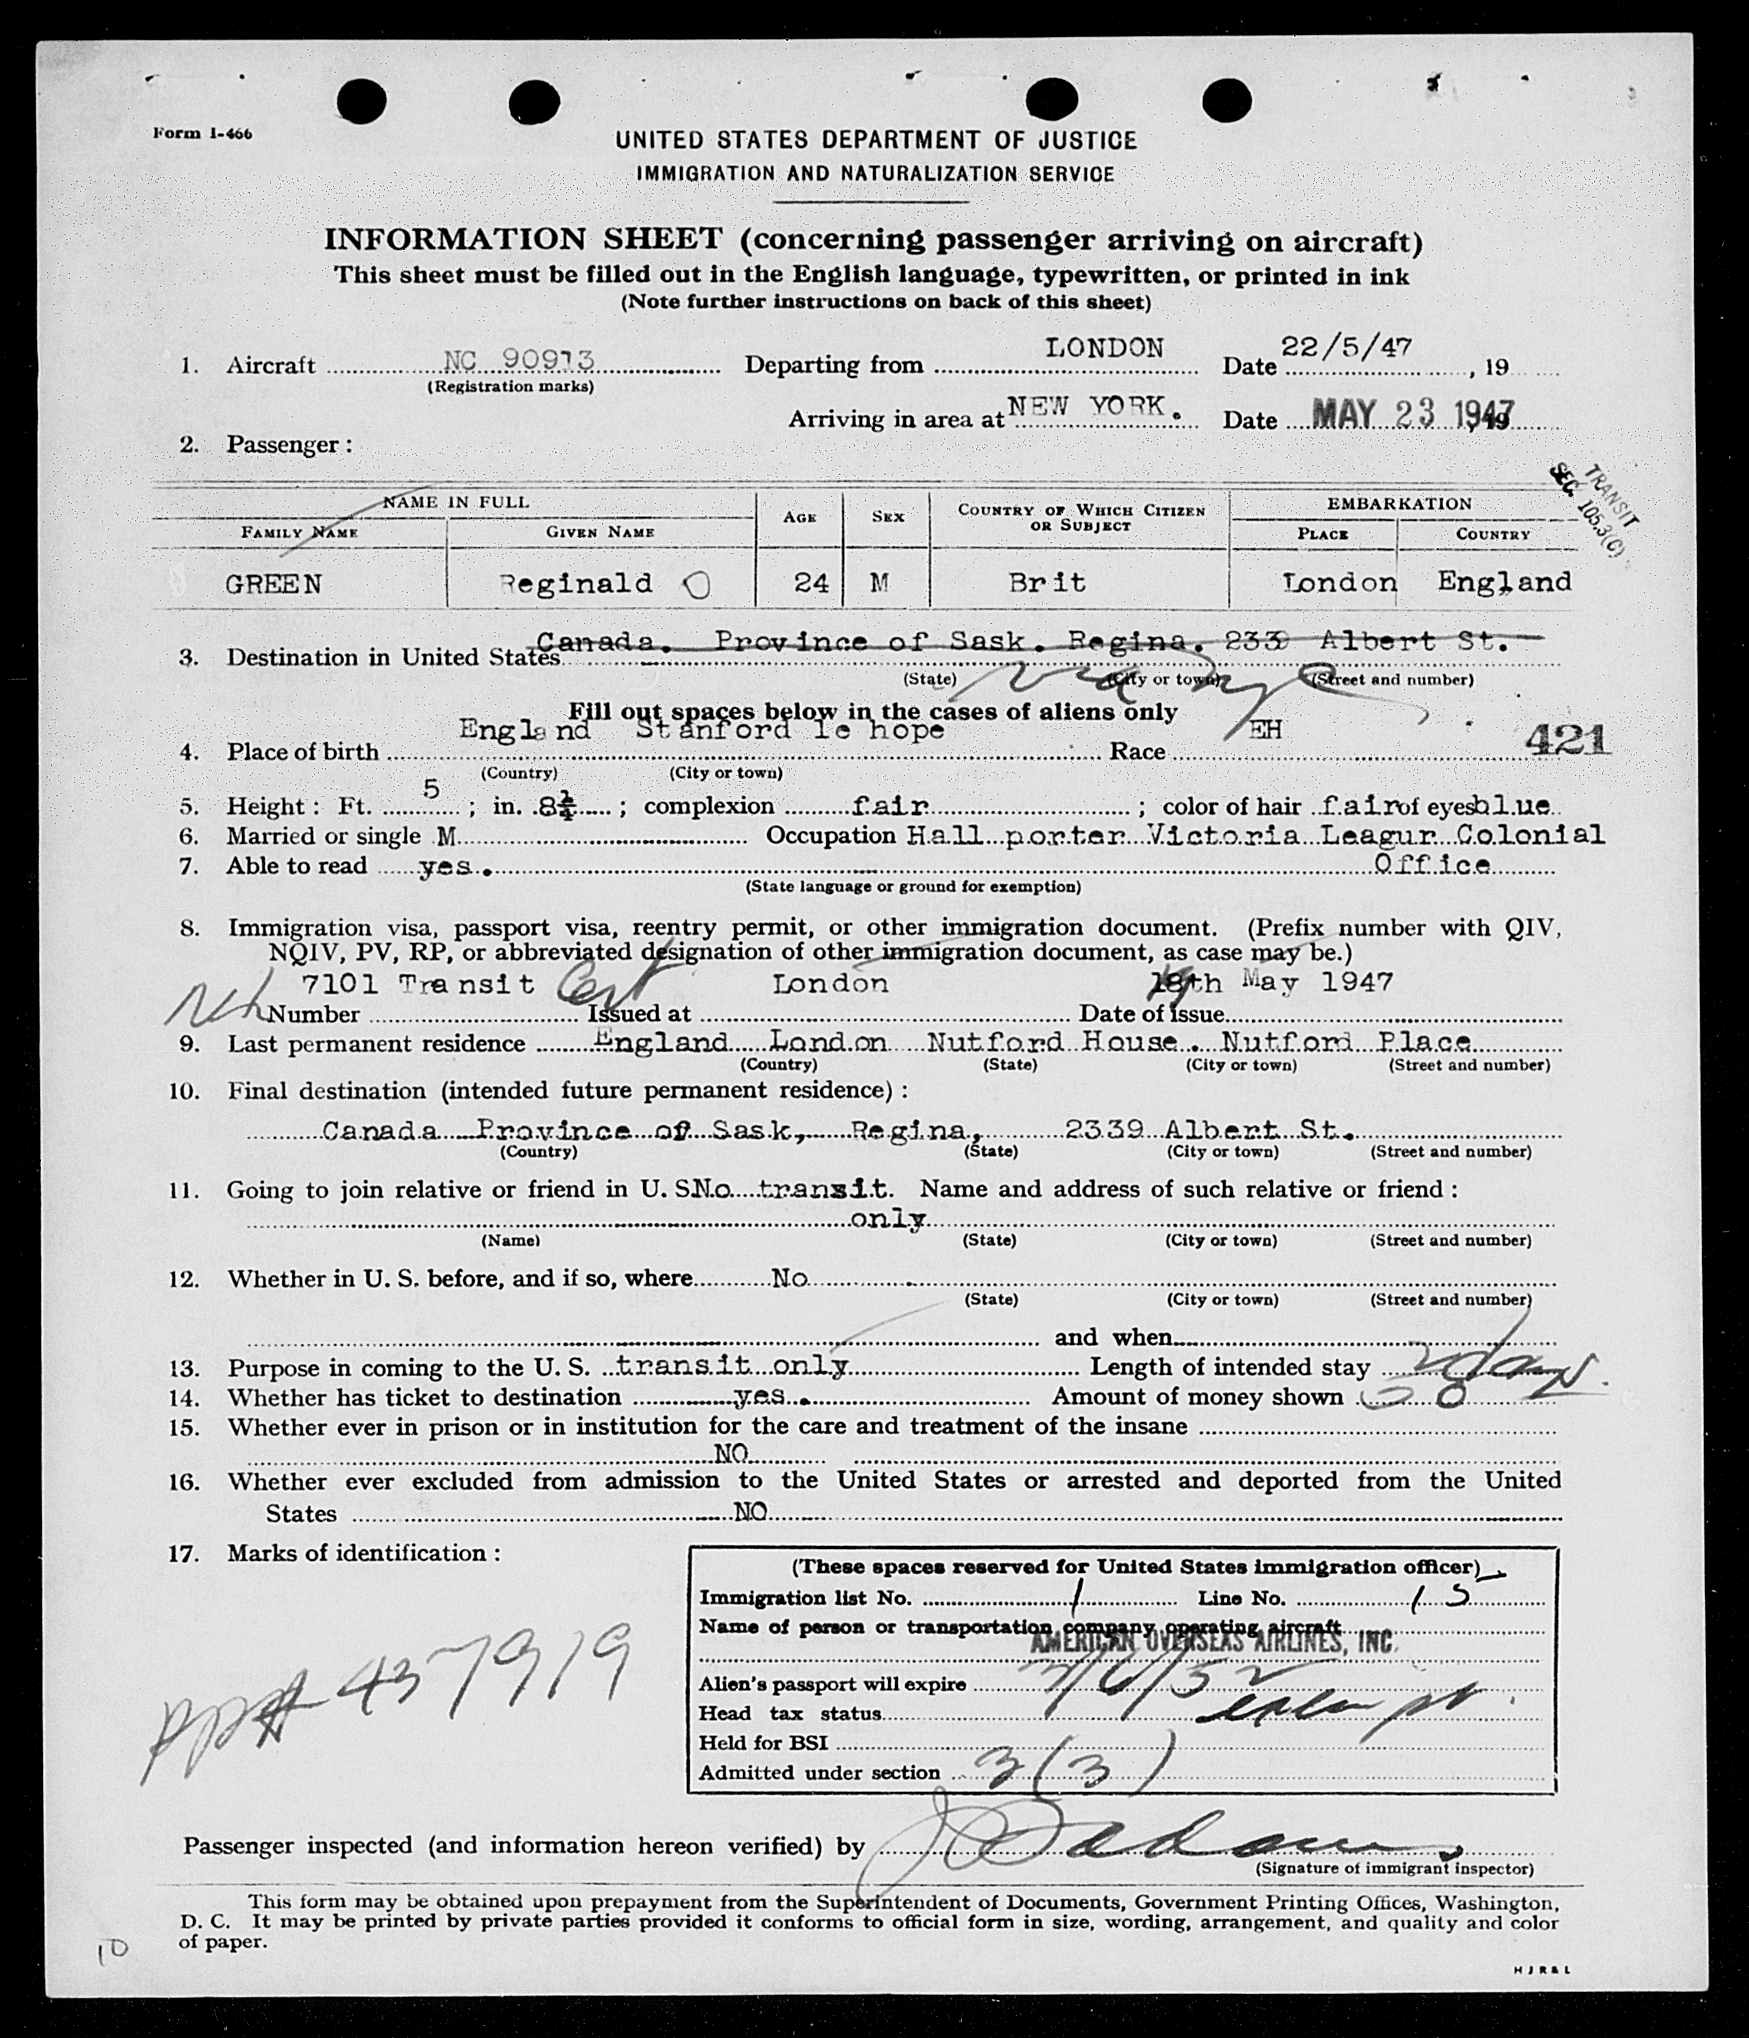 Form I-466
UNITED STATES DEPARTMENT OF JUSTICE
IMMIGRATION AND NATURALIZATION SERVICE
INFORMATION SHEET (concerning passenger arriving on aircraft)
This sheet must be filled out in the English language, typewritten, or printed in ink
(Note further instructions on back of this sheet)
1. Aircraft NC 90913 Departing from LONDON Date 22/5/47, 19
(Registration marks)
Arriving in area at NEW YORK. Date MAY 23 1947, 19
2. Passenger:
TRANSIT
SEC. 105.3(C)
NAME IN FULL AGE SEX COUNTRY OF WHICH CITIZEN OR SUBJECT EMBARKATION
FAMILY NAME GIVEN NAME PLACE COUNTRY
GREEN Reginald O 24 M Brit London England
3. Destination in United States Canada. Province of Sask. Regina. 2339 Albert St.
(State) (City or town) (Street and number)
via nyc
Fill out spaces below in the cases of aliens only
4. Place of birth England Stanford le hope Race EH 421
(Country) (City or town)
5. Height: Ft. 5; in. 8¼; complexion fair; color of hair fair of eyes blue
6. Married or single M Occupation Hall porter Victoria Leagur Colonial
7. Able to read yes. Office
(State language or ground for exemption)
8. Immigration visa, passport visa, reentry permit, or other immigration document. (Prefix number with QIV,
NQIV, PV, RP, or abbreviated designation of other immigration document, as case may be.)
7101 Transit Cert London 19th May 1947
Number Issued at Date of issue
9. Last permanent residence England London Nutford House. Nutford Place
(Country) (State) (City or town) (Street and number)
10. Final destination (intended future permanent residence):
Canada Province of Sask, Regina, 2339 Albert St.
(Country) (State) (City or town) (Street and number)
11. Going to join relative or friend in U. S. No transit. Name and address of such relative or friend:
only
(Name) (State) (City or town) (Street and number)
12. Whether in U. S. before, and if so, where No
(State) (City or town) (Street and number)
and when
13. Purpose in coming to the U. S. transit only Length of intended stay 2 days
14. Whether has ticket to destination yes. Amount of money shown
15. Whether ever in prison or in institution for the care and treatment of the insane
NO
16. Whether ever excluded from admission to the United States or arrested and deported from the United
States NO
17. Marks of identification:
PP# 437919
(These spaces reserved for United States immigration officer)
Immigration list No. 1 Line No. 15
Name of person or transportation company operating aircraft
AMERICAN OVERSEAS AIRLINES, INC.
Alien's passport will expire 3/6/52
Head tax status exempt
Held for BSI
Admitted under section 3(3)
Passenger inspected (and information hereon verified) by
(Signature of immigrant inspector)
This form may be obtained upon prepayment from the Superintendent of Documents, Government Printing Offices, Washington,
D. C. It may be printed by private parties provided it conforms to official form in size, wording, arrangement, and quality and color
of paper.
10
HJR&L